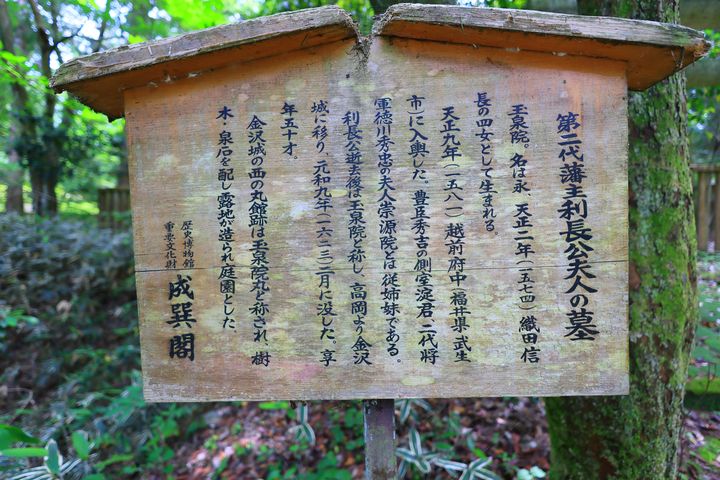 第二代藩主利長公夫人の墓
玉泉院。名は永 天正二年(一五七四) 織田信
長の四女として生まれる。
天正九年(一五八一) 越前府中(福井県 武生
市)に入輿した。豊臣秀吉の側室淀君 二代将
軍徳川秀忠の夫人崇源院とは従姉妹である。
利長公逝去後は玉泉院と称し、高岡より金沢
城に移り、元和九年(一六二三)二月に没した。享
年五十才。
金沢城の西の丸館跡は玉泉院丸と称され、樹
木・泉石を配し露地が造られ庭園とした。
歴史博物館
重要文化財 成巽閣